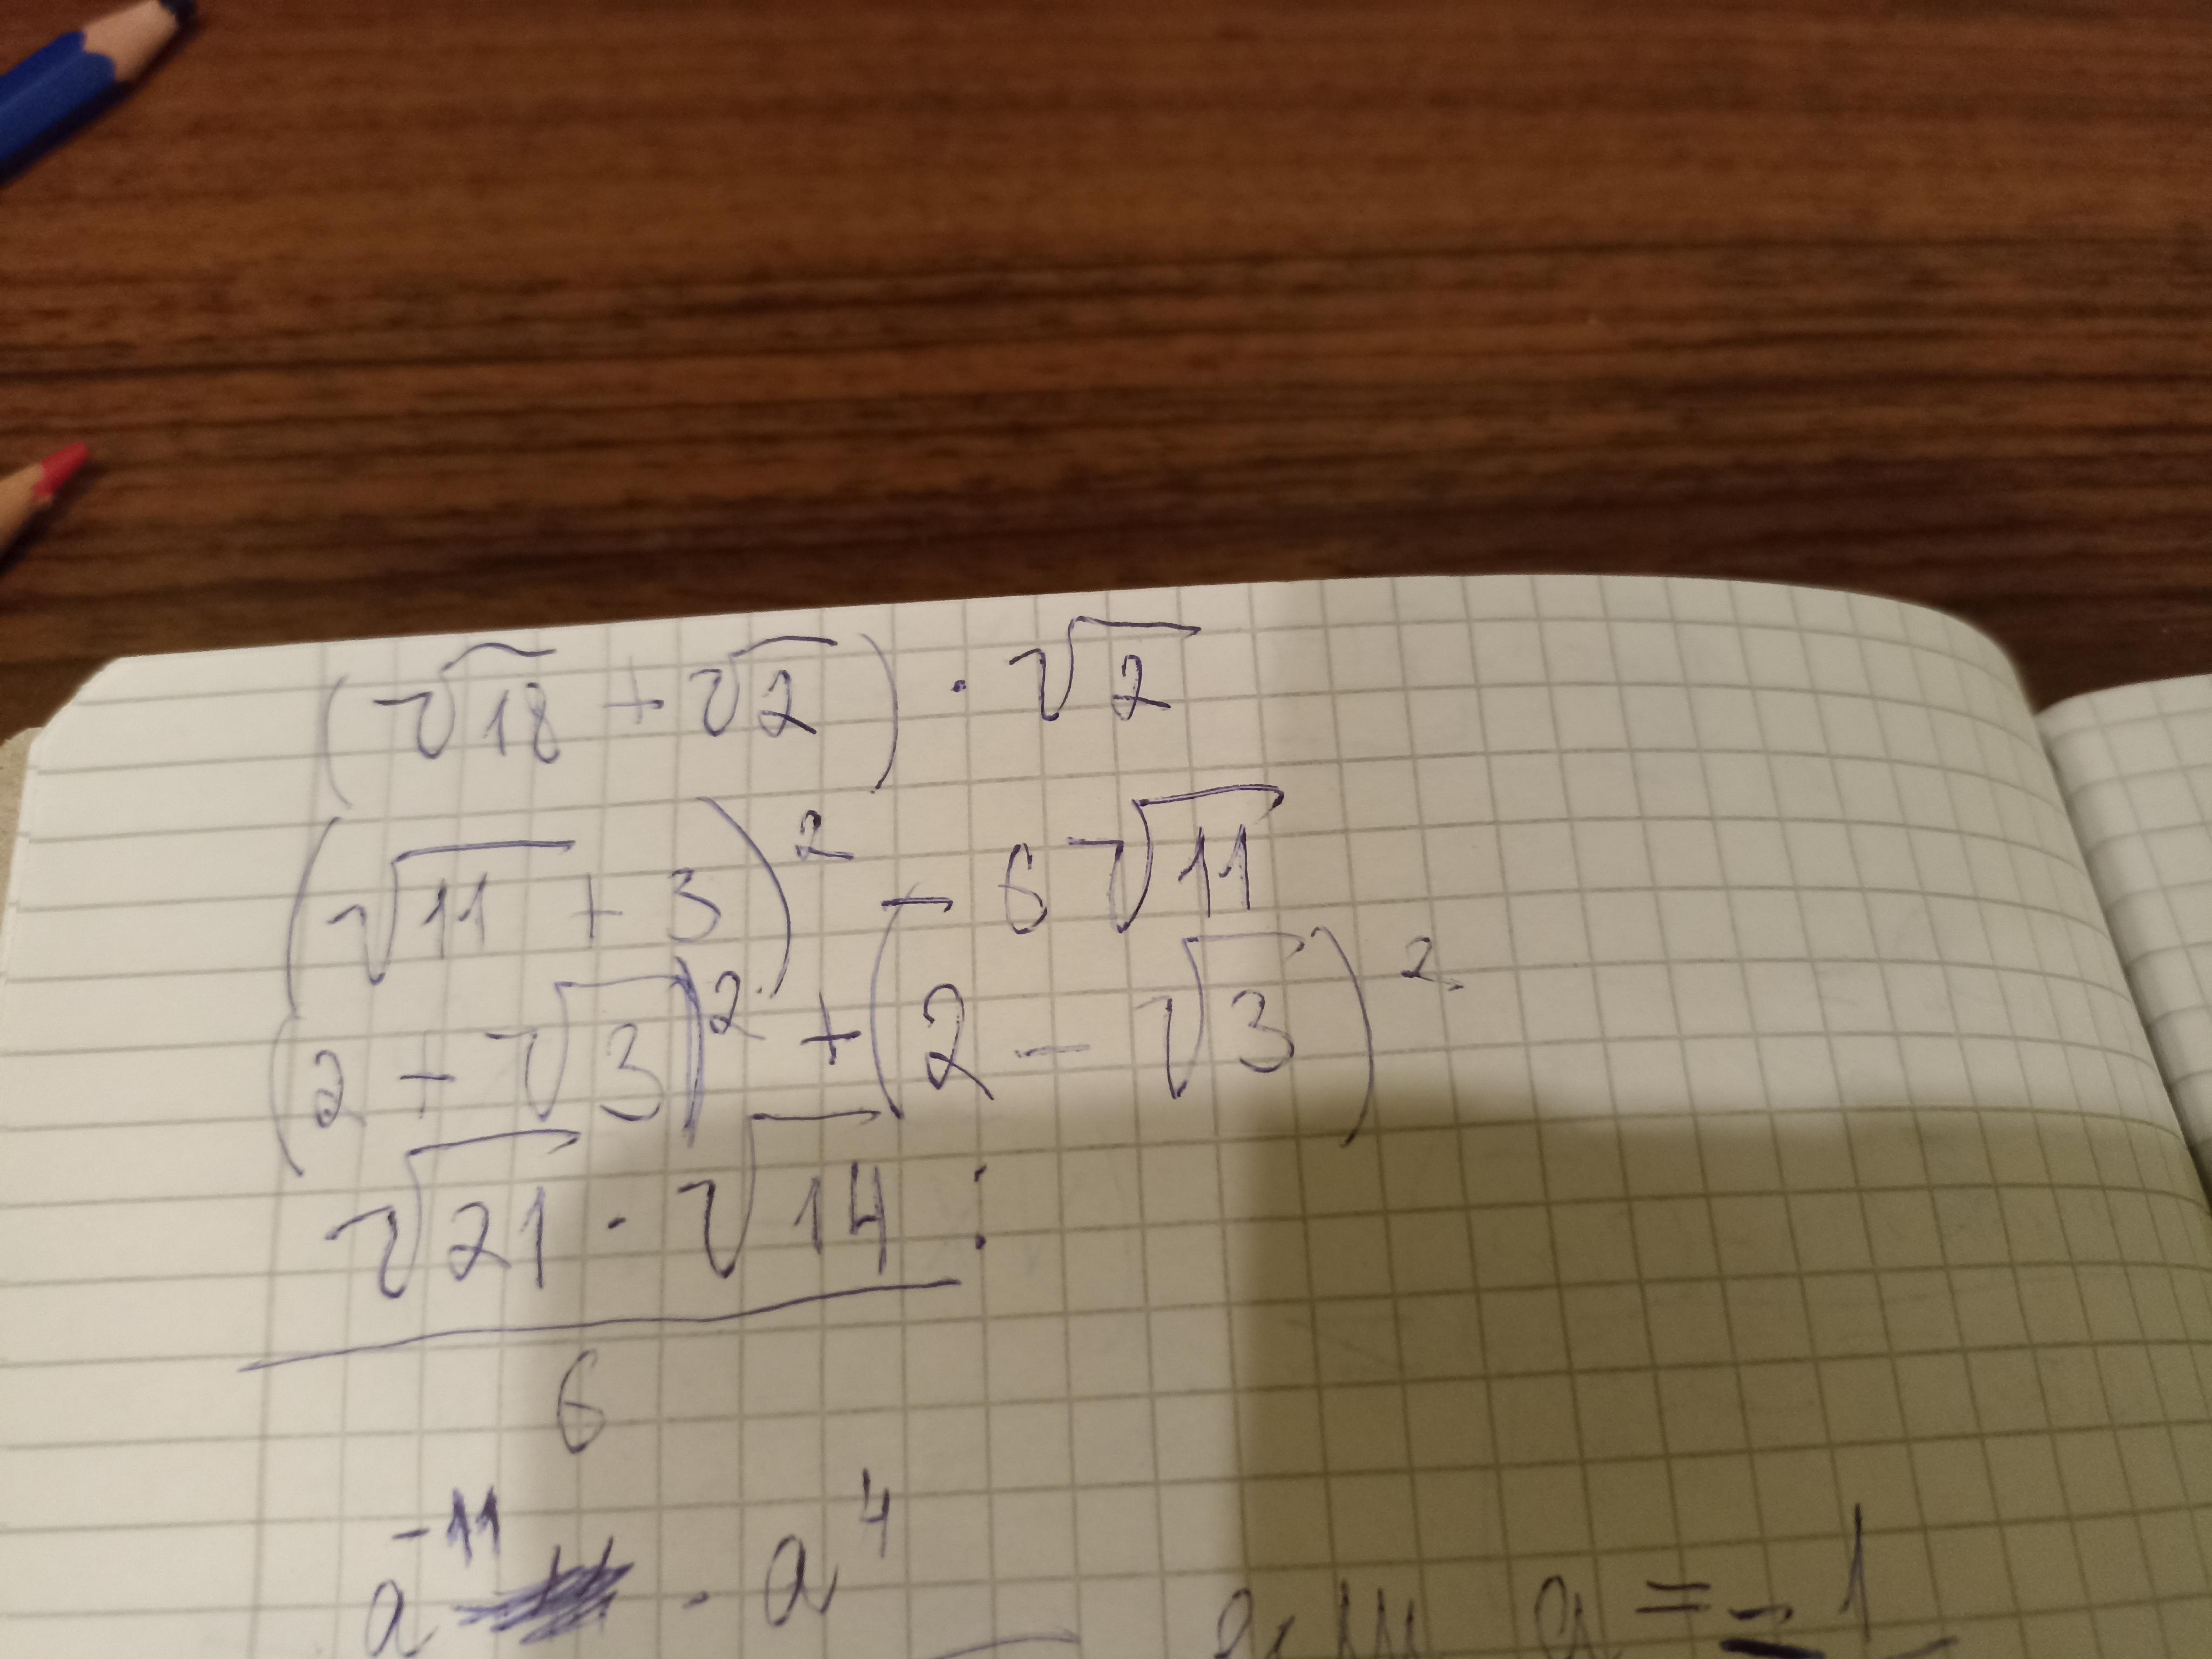 (√18 + √2) · √2
(√11 + 3)² - 6√11
(2 + √3)² + (2 - √3)²
√21 · √14 :
6
a⁻¹¹ · a⁴
a = -1